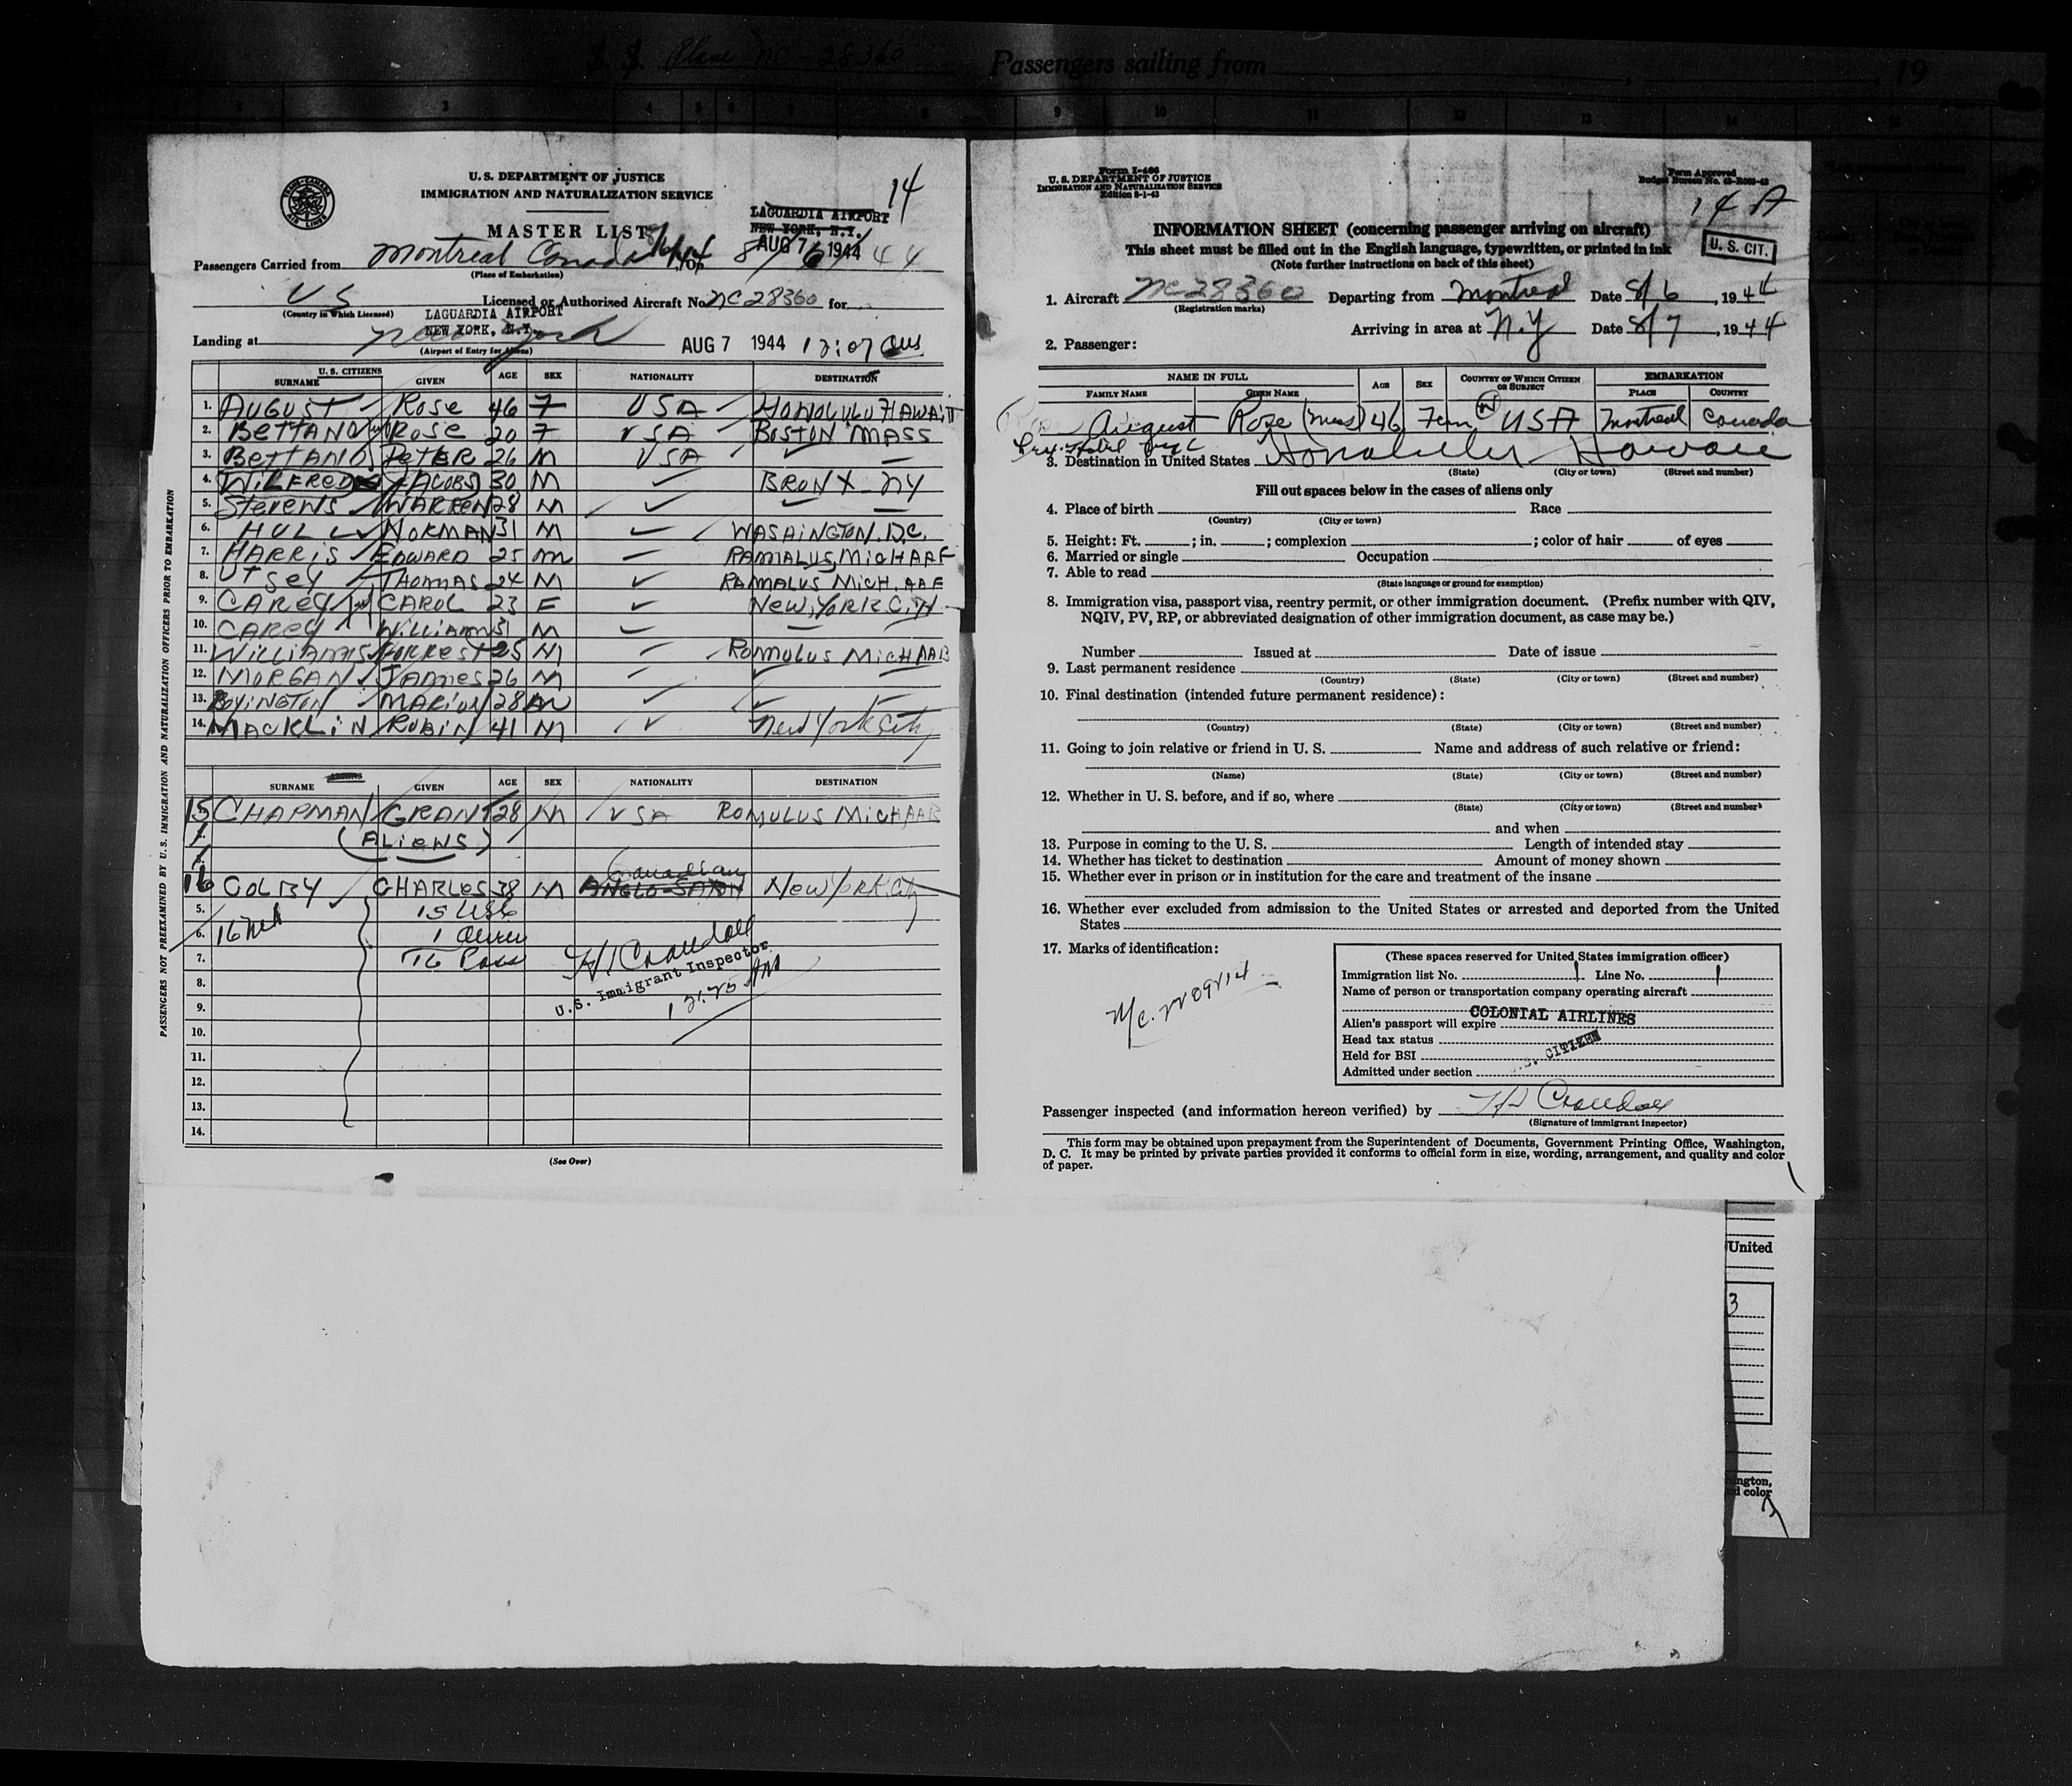 Plane NC-28360
Passengers sailing from 19
2 3 4 5 6 7 8 9 10 11 12 13 14
TRANS-CANADA AIR LINES
U. S. DEPARTMENT OF JUSTICE
IMMIGRATION AND NATURALIZATION SERVICE
14
LAGUARDIA AIRPORT
NEW YORK, N.Y.
MASTER LIST
AUG 7 1944
Passengers Carried from Montreal Canada 8/6/44
(Place of Embarkation)
US Licensed or Authorized Aircraft No. NC 28360 for
(Country in Which Licensed)
LAGUARDIA AIRPORT
NEW YORK, N.Y.
Landing at New York AUG 7 1944 12:07 am
(Airport of Entry for Aliens)
U. S. CITIZENS
SURNAME GIVEN AGE SEX NATIONALITY DESTINATION
1. AUGUST Rose 46 F USA HONOLULU HAWAII
2. BETTANO ROSE 20 F USA BOSTON MASS
3. BETTANO PETER 26 M USA
4. WILFRED JACOBS 30 M BRONX NY
5. STEVENS WARREN 28 M
6. HULL NORMAN 31 M WASHINGTON. D.C.
7. HARRIS EDWARD 25 M RAMALUS, MICH AAF
8. UTSEY THOMAS 24 M RAMALUS MICH. AAF
9. CAREY CAROL 23 F NEW YORK CITY
10. CAREY WILLIAM 31 M
11. WILLIAMS FORREST 25 M ROMULUS MICH AAB
12. MORGAN JAMES 26 M
13. BOYINGTON MARION 28 M
14. MACKLIN RUBIN 41 M New York City
SURNAME GIVEN AGE SEX NATIONALITY DESTINATION
15 CHAPMAN GRANT 28 M USA ROMULUS MICH, AAB
(ALIENS)
Canadian
16 COLBY CHARLES 38 M ANGLO-SAXON NEW YORK City
5. 15 USC
6. 1 alien
7. 16 Pass
H Crandall
U.S. Immigrant Inspector
8.
9.
10.
11.
12.
13.
14.
(See Over)
PASSENGERS NOT PREEXAMINED BY U.S. IMMIGRATION AND NATURALIZATION OFFICERS PRIOR TO EMBARKATION
Form I-466
U. S. DEPARTMENT OF JUSTICE
IMMIGRATION AND NATURALIZATION SERVICE
Edition 8-1-43
Form Approved
Budget Bureau No. 43-R083-42
14 A
INFORMATION SHEET (concerning passenger arriving on aircraft)
U. S. CIT.
This sheet must be filled out in the English language, typewritten, or printed in ink
(Note further instructions on back of this sheet)
1. Aircraft NC 28360 Departing from Montreal Date 8/6, 1944
(Registration marks)
Arriving in area at N.Y Date 8/7, 1944
2. Passenger:
NAME IN FULL AGE SEX COUNTRY OF WHICH CITIZEN OR SUBJECT EMBARKATION
FAMILY NAME GIVEN NAME PLACE COUNTRY
August Rose (Mrs) 46 Fem N USA Montreal Canada
3. Destination in United States Honolulu Hawaii
(State) (City or town) (Street and number)
Fill out spaces below in the cases of aliens only
4. Place of birth Race
(Country) (City or town)
5. Height: Ft. ; in. ; complexion ; color of hair of eyes
6. Married or single Occupation
7. Able to read
(State language or ground for exemption)
8. Immigration visa, passport visa, reentry permit, or other immigration document. (Prefix number with QIV,
NQIV, PV, RP, or abbreviated designation of other immigration document, as case may be.)
Number Issued at Date of issue
9. Last permanent residence
(Country) (State) (City or town) (Street and number)
10. Final destination (intended future permanent residence):
(Country) (State) (City or town) (Street and number)
11. Going to join relative or friend in U. S. Name and address of such relative or friend:
(Name) (State) (City or town) (Street and number)
12. Whether in U. S. before, and if so, where
(State) (City or town) (Street and number)
and when
13. Purpose in coming to the U. S. Length of intended stay
14. Whether has ticket to destination Amount of money shown
15. Whether ever in prison or in institution for the care and treatment of the insane
16. Whether ever excluded from admission to the United States or arrested and deported from the United
States
17. Marks of identification:
(These spaces reserved for United States immigration officer)
Immigration list No. 1 Line No. 1
Name of person or transportation company operating aircraft
COLONIAL AIRLINES
Alien's passport will expire
Head tax status
Held for BSI
U.S. CITIZEN
Admitted under section
Passenger inspected (and information hereon verified) by H Crandall
(Signature of immigrant inspector)
This form may be obtained upon prepayment from the Superintendent of Documents, Government Printing Office, Washington,
D. C. It may be printed by private parties provided it conforms to official form in size, wording, arrangement, and quality and color
of paper.
United
3
ington,
d color